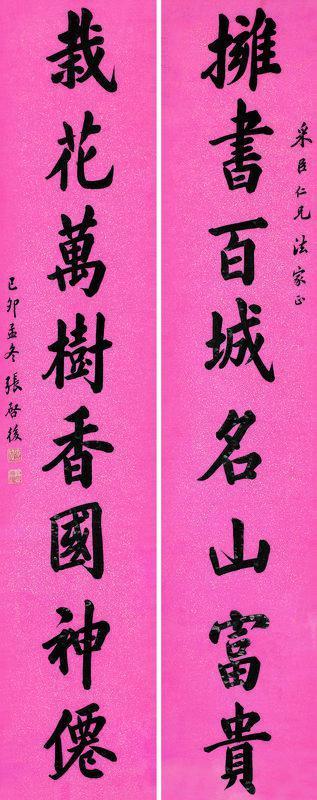 采臣仁兄法家正
擁書百城名山富貴
栽花萬樹香國神僊
己卯孟冬張啓後